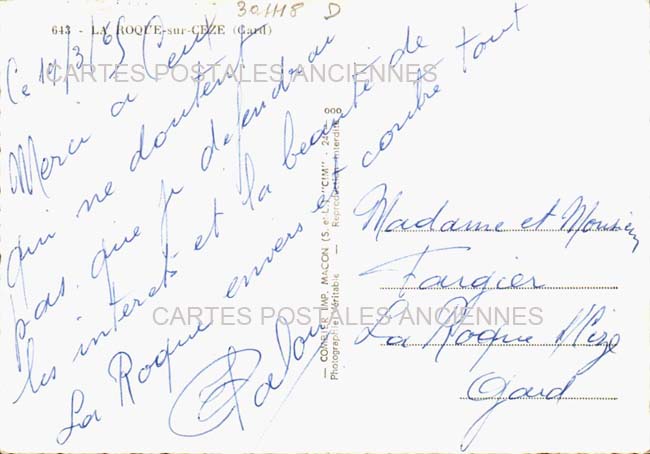 301118 D
643 - LA ROQUE-sur-CEZE (Gard)
Ce 14/3/65
Merci à Ceux
qui ne doutent
pas que je defendrai
les interets et la beauté de
La Roque envers et contre tout
CARTES POSTALES ANCIENNES
CARTES POSTALES ANCIENNES
— COMBIER IMP. MACON (S. et L.) "CIM" -
Photographie Véritable — Reproduction Interdite
Madame et Monsieur
Fargier
La Roque s/Cèze
Gard